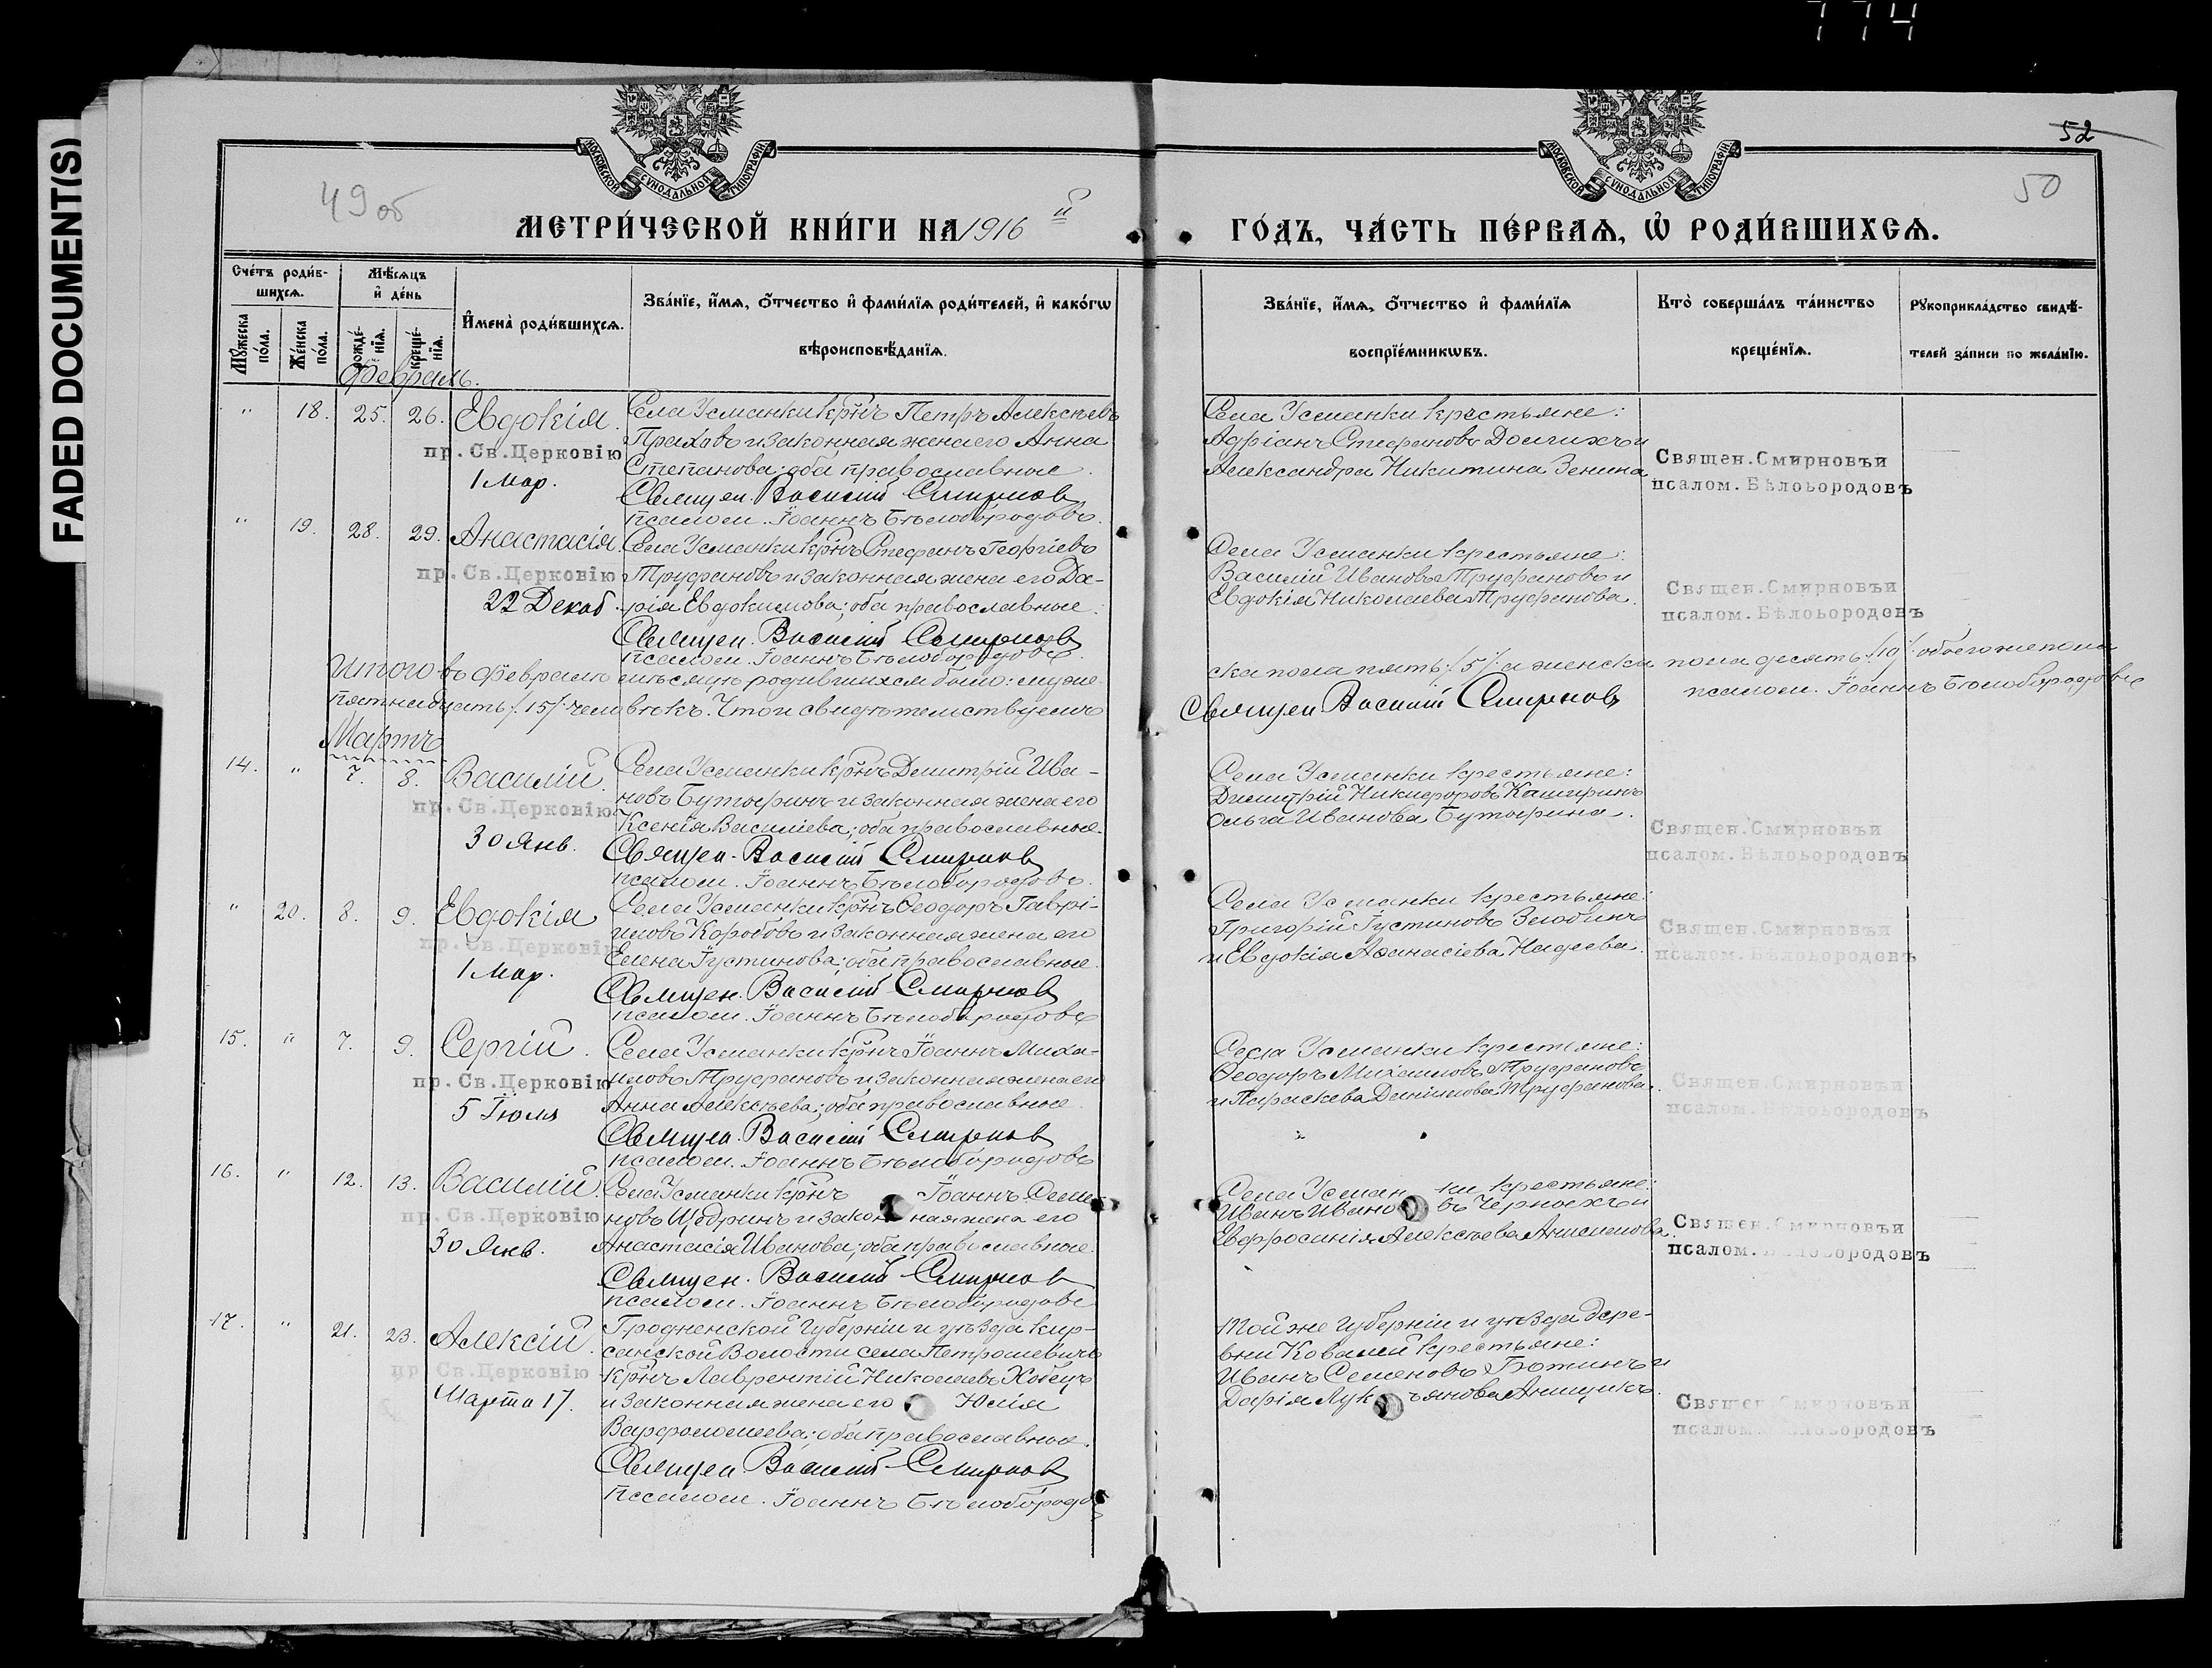 774
FADED DOCUMENT(S)
МОСКОВСКОЙ СѴНОДАЛЬНОЙ ТИПОГРАФІИ
МОСКОВСКОЙ СѴНОДАЛЬНОЙ ТИПОГРАФІИ
52
49об
50
МЕТРИ́ЧЕСКОЙ КНИ́ГИ НА 1916 й
ГО́ДЪ, ЧА́СТЬ ПЕ́РВАѦ, Ѽ РОДИ́ВШИХСѦ.
Сче́тъ роди́в-
шихсѧ.
Мѹ́жеска по́ла.
Же́нска по́ла.
Мѣ́сѧцъ
и҆ де́нь
рожде́-
нїѧ.
креще́-
нїѧ.
И҆мена̀ роди́вшихсѧ.
Зва́нїе, и҆́мѧ, ѻ҆́тчество и҆ фами́лїѧ роди́телей, и҆ како́гѡ
вѣроисповѣ́данїѧ.
Зва́нїе, и҆́мѧ, ѻ҆́тчество и҆ фами́лїѧ
воспрїе́мникѡвъ.
Кто̀ соверша́лъ та́инство
креще́нїѧ.
Рѹкоприкла́дство свидѣ́-
телей за́писи по жела́нїю.
Февраль.
" 18. 25. 26. Евдокія.
пр. Св. Церковію
1 Мар.
Села Усманки кр̃нъ Петръ Алексѣевъ
Праховъ и законная жена его Анна
Степанова; оба православные.
Священ. Василій Смирнов
псалом. Іоаннъ Бѣлобородовъ.
Села Усманки крестьяне:
Адріанъ Стефановъ Долгихъ и
Александра Никитина Зенина
Священ. Смирновъи
псалом. Бѣлоьородовъ
" 19. 28. 29. Анастасія.
пр. Св. Церковію
22 Декаб.
Села Усманки кр̃нъ Стефанъ Георгіевъ
Труфановъ и законная жена его Да-
рія Евдокимова; оба православные.
Священ. Василій Смирнов
псалом. Іоаннъ Бѣлобородовъ.
Села Усманки крестьяне:
Василій Ивановъ Труфановъ и
Евдокія Николаева Труфанова.
Священ. Смирновъи
псалом. Бѣлоьородовъ
Итого въ Февралѣ мѣсяцѣ родившихся было: муже-
ска пола пять /5/ а женска пола десять /10/ обоего же пола
пятнадцать /15/ человѣкъ. Что и свидѣтельствуемъ
Священ Василій Смирновъ
псалом. Іоаннъ Бѣлобородовъ
Мартъ
14. " 7. 8. Василій.
пр. Св. Церковію
30 Янв.
Села Усманки кр̃нъ Димитрій Ива-
новъ Бутыринъ и законная жена его
Ксенія Василіева; оба православные.
Священ. Василій Смирнов
псалом. Іоаннъ Бѣлобородовъ.
Села Усманки крестьяне:
Димитрій Никифоровъ Кашфинъ
Ольга Иванова Бутырина.
Священ. Смирновъи
псалом. Бѣлоьородовъ
" 20. 8. 9. Евдокія
пр. Св. Церковію
1 Мар.
Села Усманки кр̃нъ Ѳеодоръ Гаврі-
иловъ Коробовъ и законная жена его
Елена Густинова; оба православные.
Священ. Василій Смирнов
псалом. Іоаннъ Бѣлобородовъ
Села Усманки крестьяне:
Григорій Густиновъ Злобинъ
и Евдокія Аѳанасіева Надеева.
Священ. Смирновъи
псалом. Бѣлоьородовъ
15. " 7. 9. Сергій.
пр. Св. Церковію
5 Іюля
Села Усманки кр̃нъ Іоаннъ Миха-
иловъ Труфановъ и законная жена его
Анна Алексѣева; оба православные.
Священ. Василій Смирнов
псалом. Іоаннъ Бѣлобородовъ
Села Усманки крестьяне:
Ѳеодоръ Михаиловъ Труфановъ
и Параскева Даніилова Труфанова.
Священ. Смирновъи
псалом. Бѣлоьородовъ
16. " 12. 13. Василій.
пр. Св. Церковію
30 Янв.
Села Усманки кр̃нъ Іоаннъ Семе-
новъ Щедринъ и законная жена его
Анастасія Иванова; оба православные.
Священ. Василій Смирнов
псалом. Іоаннъ Бѣлобородовъ
Села Усманки крестьяне:
Иванъ Ивановъ Черныхъ и
Евфросинія Алексѣева Анисимова.
Священ. Смирновъи
псалом. Бѣлоьородовъ
17. " 21. 23. Алексій.
пр. Св. Церковію
Марта 17.
Гродненской Губерніи и уѣзда
санской Волости села Петрашевичъ
кр̃нъ Лаврентій Николаевъ Хобецъ
и законная жена его Юлія
Варфоломеева; оба православные.
Священ Василій Смирновъ
псалом. Іоаннъ Бѣлобородо
Той же Губерніи и уѣзда дере-
вни Ковалей крестьяне:
Иванъ Семеновъ и
Дарія Лукьянова Анищикъ.
Священ. Смирновъи
псалом. Бѣлоьородовъ